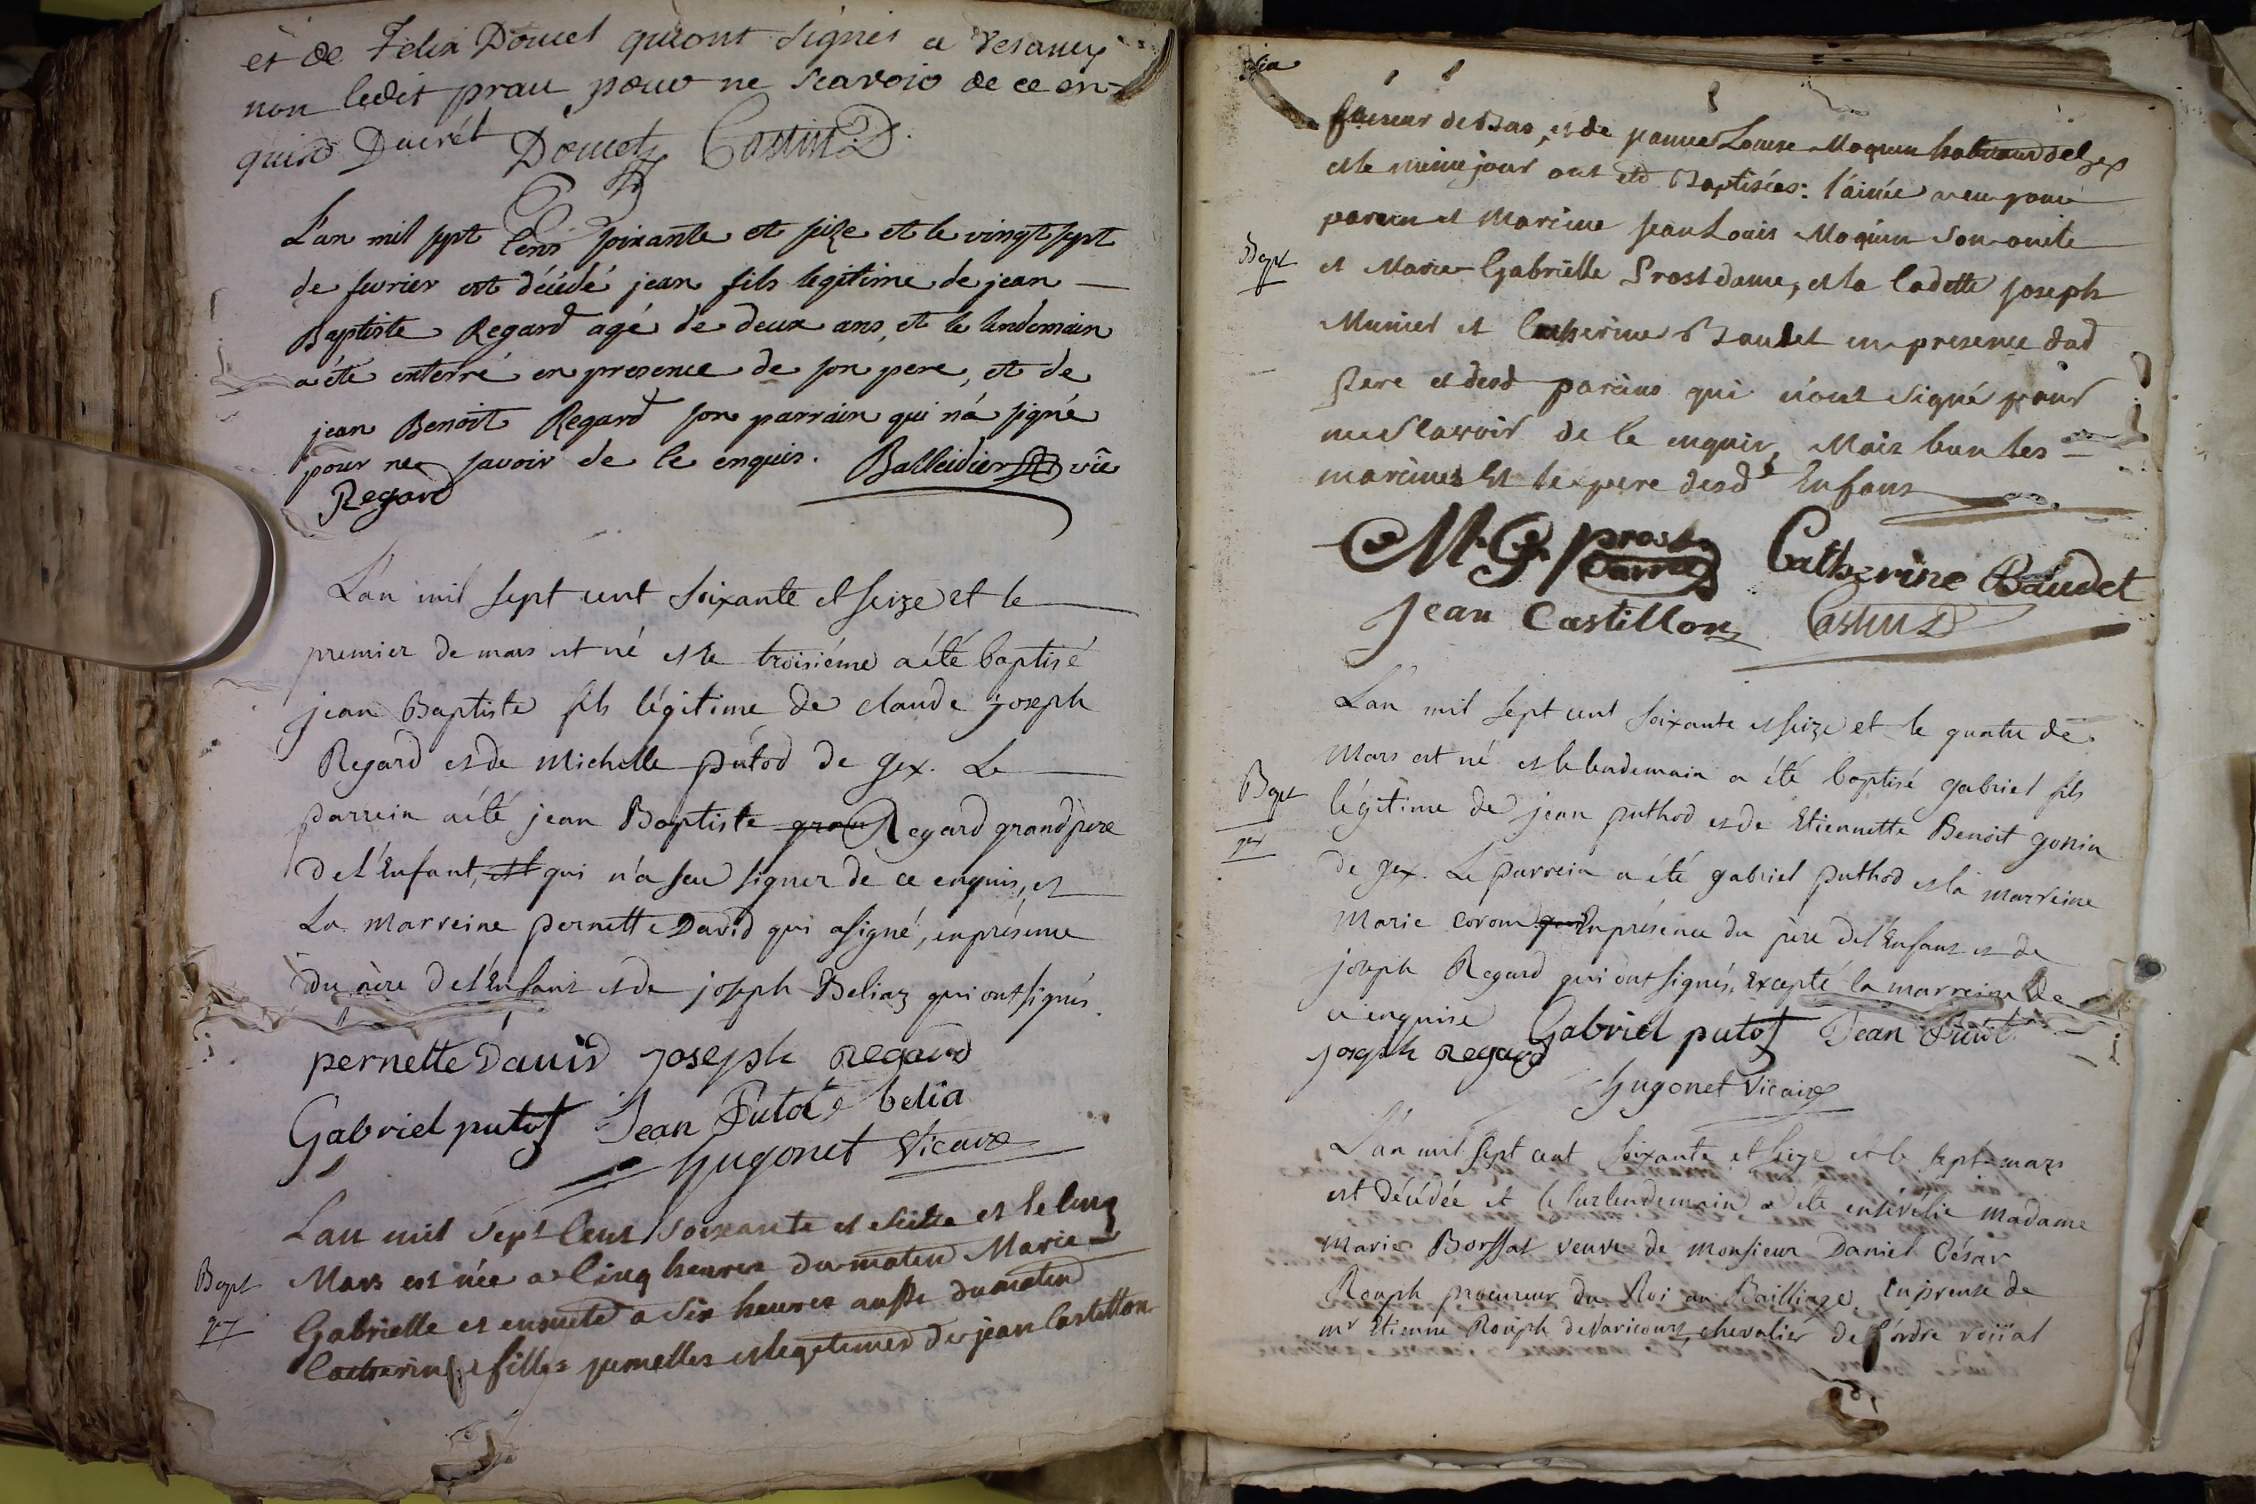 et de Felix Doucet qui ont signés a Vesancy
non ledit prau pour ne scavoir de ce en-
quis Ducrét Doucet Castin
L'an mil sept cent soixante et seize et le vingt sept
de fevrier est décédé jean fils legitime de jean
Baptiste Regard agé de deux ans, et le lendemain
a été enterré en presence de son pere, et de
jean Benoit Regard son parrain qui n'a signé
pour ne savoir de ce enquis. Balleidier vic
Regard
L'an mil sept cent soixante et seize et le
premier de mars est né et le troisiéme a été baptisé
jean Baptiste fils légitime de claude joseph
Regard et de Michelle putod de gex. Le
parrein a été jean Baptiste Regard grandpère
de l'Enfant, qui n'a seu signer de ce enquis, et
La marreine pernette David qui a signé, en présence
du père de l'Enfant et de joseph Beliaz qui ont signés.
pernette David joseph Regard
Gabriel putot Jean Putot belia
hugonet Vicaire
L'an mil sept cent soixante et seize et le cinq
Bapt
Mars est née a cinq heures du matin Marie
gex
Gabrielle et ensuite a six heures aussi du matin
Catherine filles jumelles et legitimes de jean Castillon
faiseur de Bas, et de Louise Moquin habitans de Gex
et le même jour ont été Baptisées: l'ainée a eu pour
parein et Mareine Jean Louis Moquin son oncle
Bapt
et Marie Gabrielle Prost dame, et la Cadette joseph
Munier et Catherine Baudet en presence dud
Pere et desd pareins qui n'ont signé pour
ne sçavoir de ce enquis, Mais bien les
mareines et le pere desd Enfans
M. G. prost Dame Catherine Baudet
Jean Castillon Castin
L'an mil sept cent soixante et seize et le quatre de
Mars est né et le lendemain a été baptisé gabriel fils
Bapt
légitime de jean puthod et de Etiennette Benoit gonin
gex
de gex. Le parrein a été gabriel puthod et la marreine
Marie en présence du père de l'Enfant et de
joseph Regard qui ont signés, Excepté la marreine de
ce enquise Gabriel putot Jean Putot
joseph Regard
hugonet Vicaire
L'an mil sept cent soixante et seize et le sept mars
est décédée et le surlendemain a été ensévélie Madame
Marie Borssat veuve de Monsieur Daniel César
Rouph procureur du Roi au Bailliage, En présence de
mr Etienne Rouph de Varicourt, chevalier de l'ordre roïial